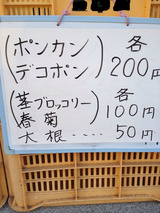 ポンカン 各
デコポン 200円
(茎ブロッコリー) 各
春菊 100円
大根‥‥ 50円